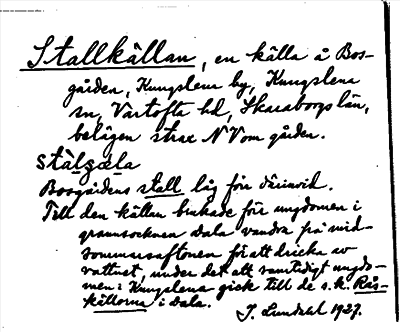 Stallkällan, en källa å Bos-
gården, Kungslena by, Kungslena
sn, Vartofta hd, Skaraborgs län,
belägen strax NV om gården.
stálʒæla
Bosgårdens stall låg förr därinvid.
Till den källan brukade förr ungdomen i
grannsocknen Dala vandra på mid-
sommaraftonen för att dricka av
vattnet, under det att samtidigt ungdo-
men i Kungslena gick till de s.k. Rås-
källorna i Dala.
J. Lundahl 1927.